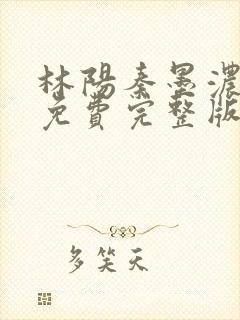 林陽秦墨濃
免費完整版
多笑天